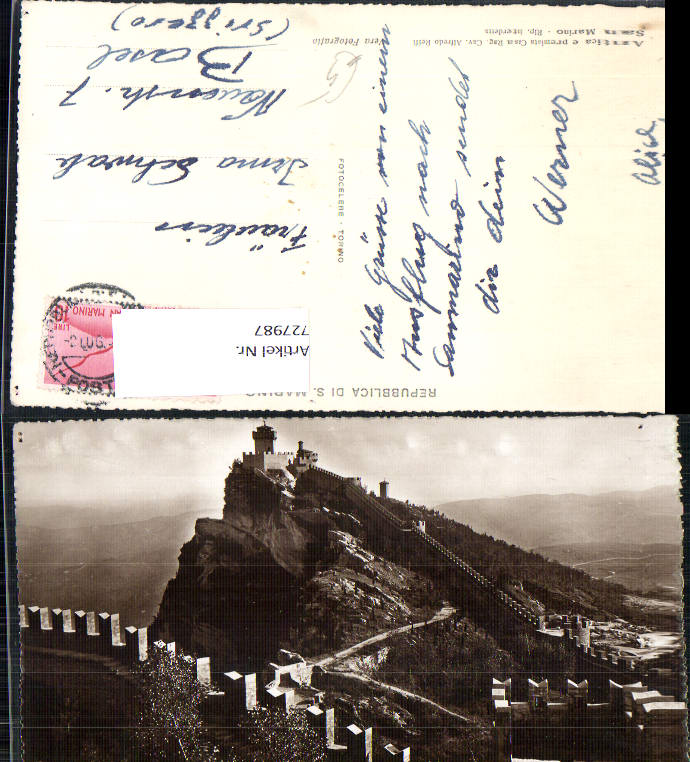 REPUBBLICA DI S. MARINO
Viele Grüsse von einem
Ausflug nach
Sanmarino sendet
dir dein
Werner
FOTOCELERE - TORINO
Fräulein
Irma Schwab
Basel
(Svizzera)
Vera Fotografia
Antica e premiata Casa Rag. Cav. Alfredo Reffi
San Marino - Rip. interdetta
SAN MARINO
LIRE
10
POST
Artikel Nr.
727987